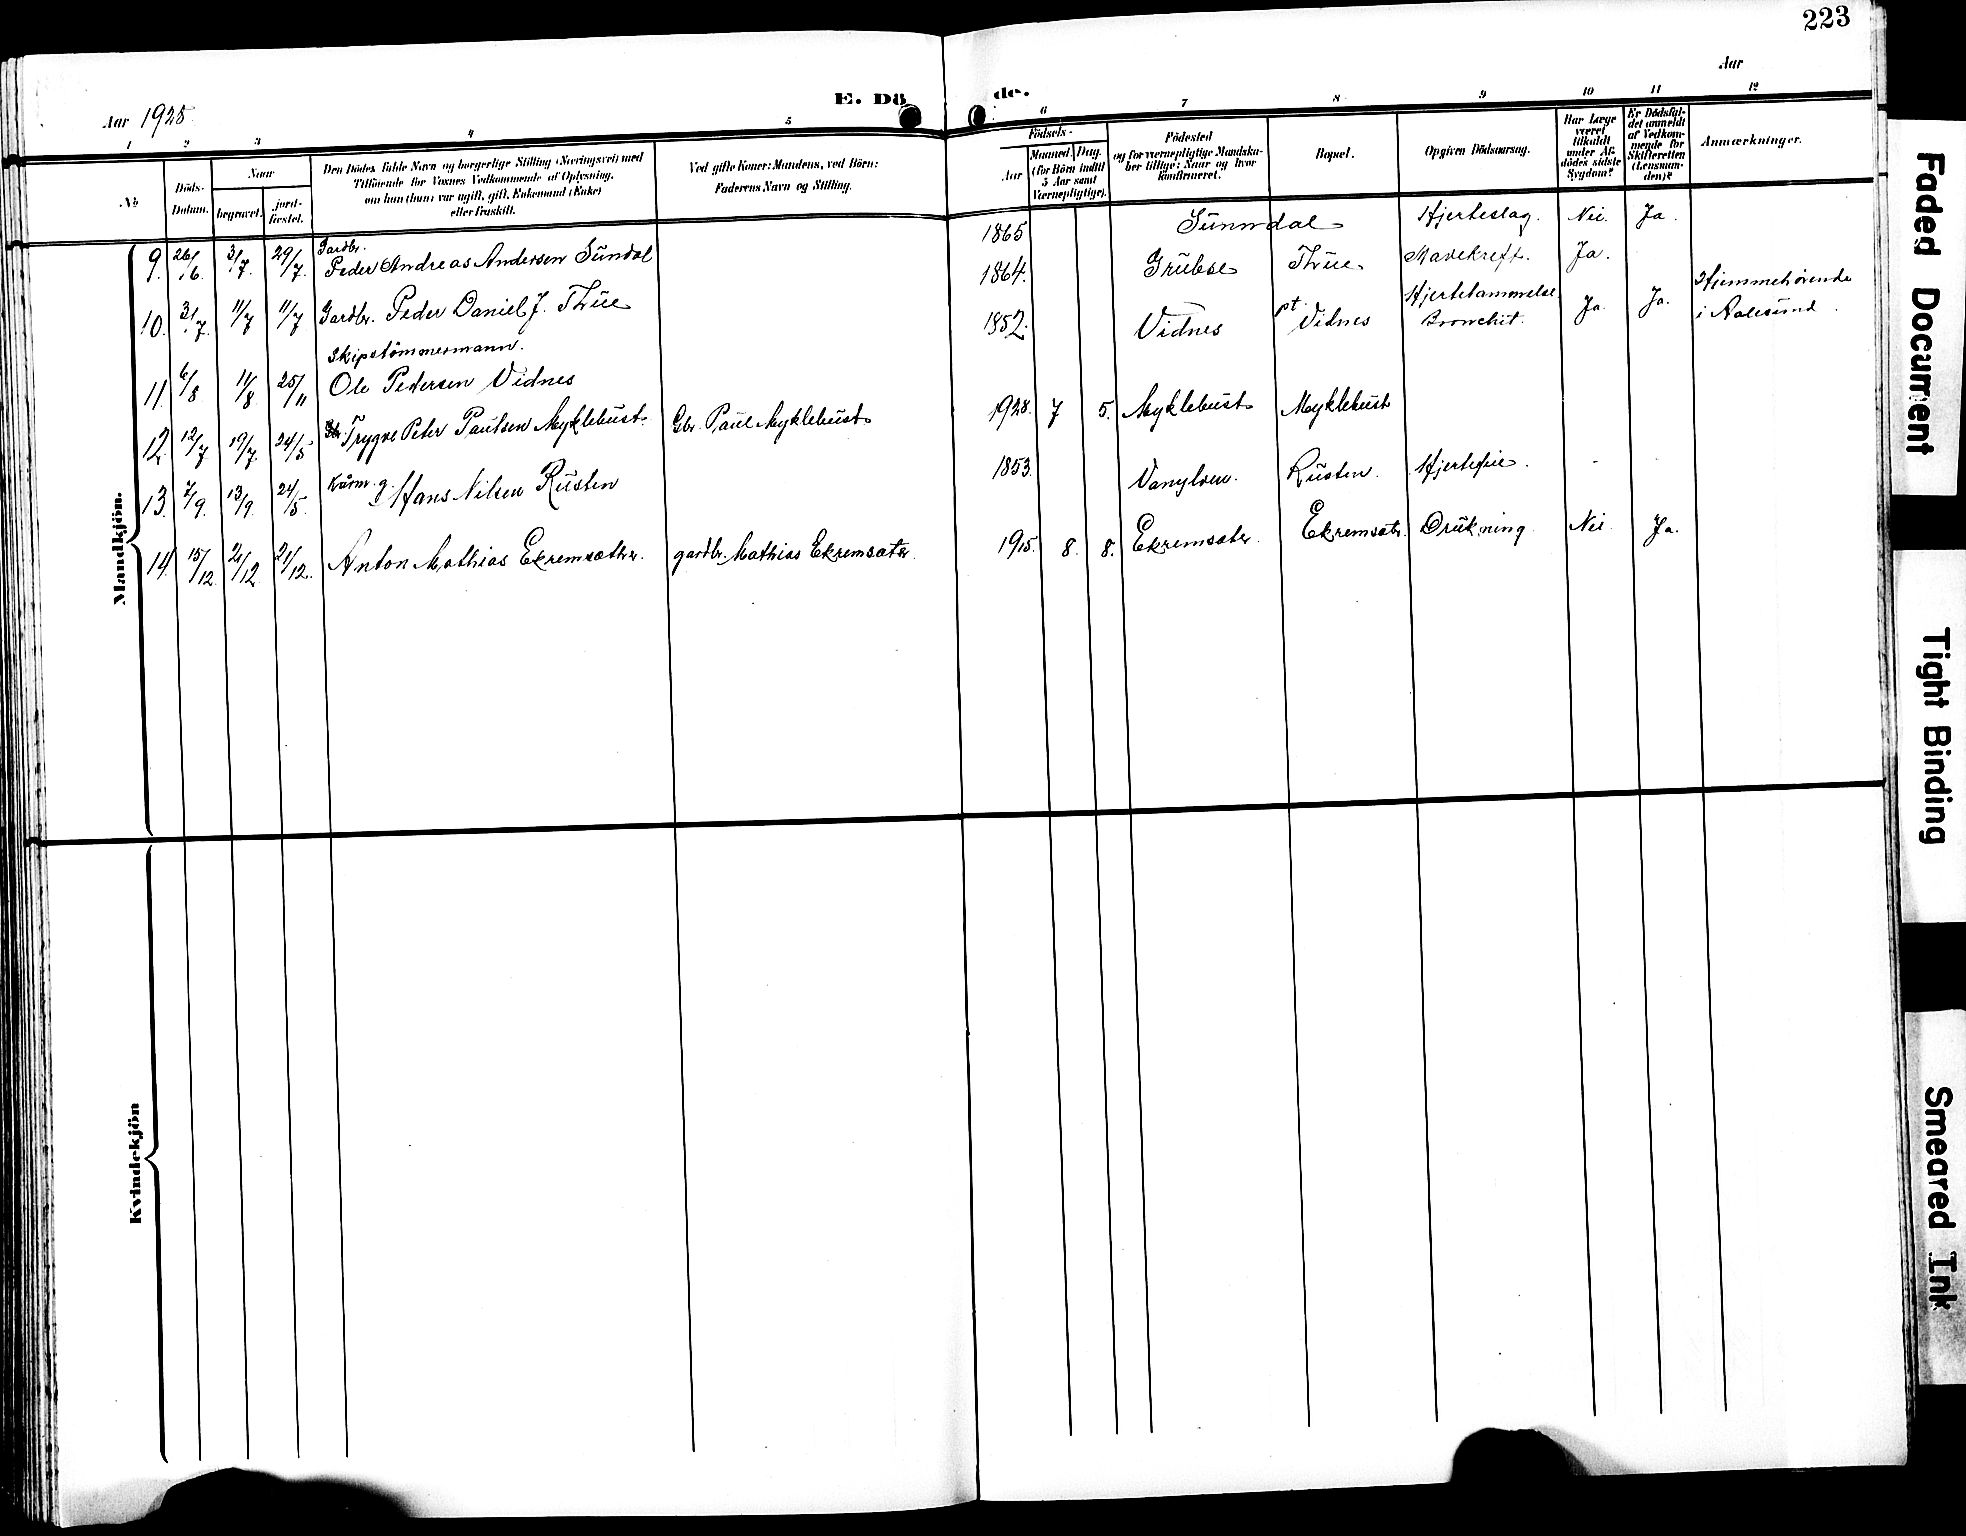 223
Aar 1928
E. Dö
de.
Aar
1 2 3 4 5 6 7 8 9 10 11 12
No
Döds-
Datum.
Naar
begravet.
jord-
fæstet.
Den Dödes fulde Navn og borgerlige Stilling (Næringsvei) med
Tilföiende for Voxnes Vedkommende af Oplysning,
om han (hun) var ugift, gift, Enkemand (Enke)
eller fraskilt.
Ved gifte Koner: Mandens, ved Börn:
Faderens Navn og Stilling.
Födsels-
Aar
Maaned. Dag.
(for Börn indtil
5 Aar samt
Værnepligtige).
Födested
og for værnepligtige Mandska-
ber tillige: Naar og hvor
konfirmeret.
Bopæl.
Opgiven Dödsaarsag.
Har Læge
været
tilkaldt
under Af-
dödes sidste
Sygdom?
Er Dödsfal-
det anmeldt
af Vedkom-
mende for
Skifteretten
(Lensman-
den)?
Anmærkninger.
Mandkjön.
Gardbr.
9. 26/6. 3/7. 29/7. Peder Andreas Andersen Sundal 1865 Sunndal Hjerteslag. Nei. Ja.
10. 3/7. 11/7 11/7 Gardbr. Peder Daniel J. Thue 1864. Grubse Thue Mavekreft. Ja.
Skipstömmermann.
11. 6/8 11/8 25/11 Ole Pedersen Vidnes 1852. Vidnes pt Vidnes Hjertelammelse Bronchit. Ja. Ja. Hjemmehörende
i Aalesund.
12. 12/7 19/7. 24/5 Trygve Peter Paulsen Myklebust. Gbr. Paul Myklebust 1928. 7 5. Myklebust Myklebust
13. 7/9. 13/9. 24/5. Kårm. g. Hans Nilsen Rusten 1853. Vanylven. Rusten. Hjertefeil. - -
14. 15/12. 21/12 21/12. Anton Mathias Ekremsæther. gardbr. Mathias Ekremsæter 1915. 8. 8. Ekremsæter Ekremsæter. Drukning. Nei. Ja.
Kvindekjön
Faded Document
Tight Binding
Smeared Ink